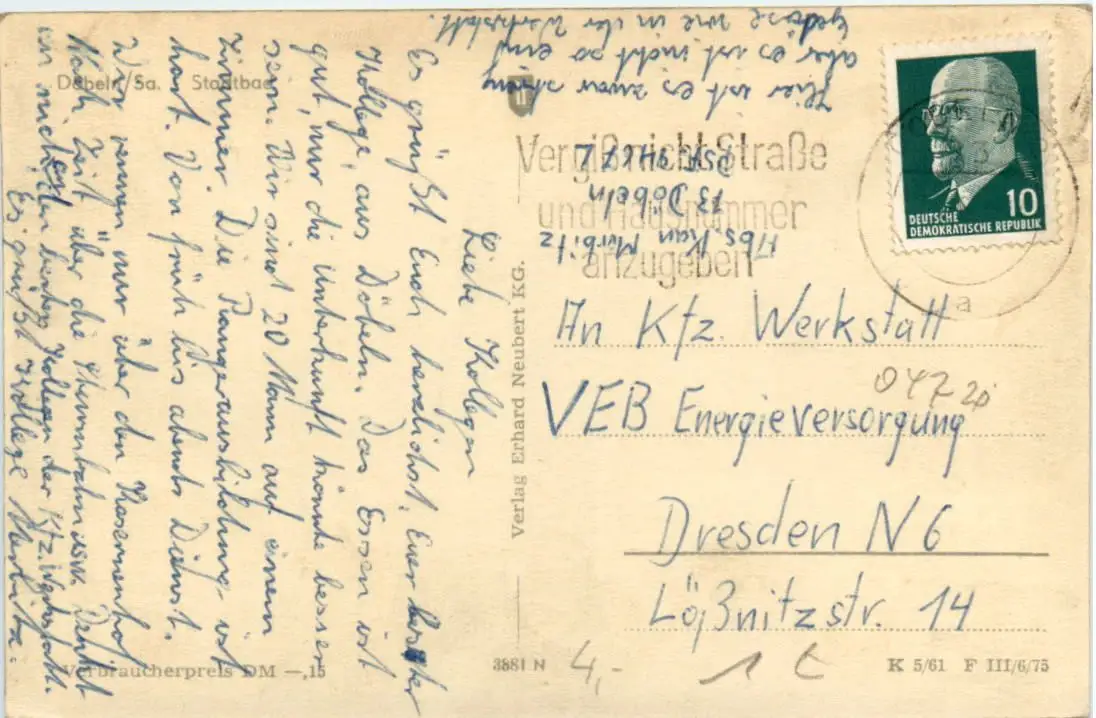 Döbeln/Sa. Stadtbad
Liebe Kollegen
Es grüßt Euch herzlichst Euer
Kollege aus Döbeln. Das Essen ist
gut, nur die Unterkunft könnte besser
sein. Wir sind 20 Mann auf einem
Zimmer. Die Ausbildung ist
hart. Von früh bis abends Dienst.
Wir rennen nur über den Kasernenhof
Nach Zeit über die Sturmbahn. Denkt
an mich, den Kollegen der Kfz. Werkstatt.
Es grüßt Kollege
Hier ist es zwar streng
aber es ist nicht so ein
Getöse wie in der Werkstatt.
Abs. Karl
73 Döbeln
Vergißnicht Straße
und Hausnummer
anzugeben
DEUTSCHE
DEMOKRATISCHE REPUBLIK
10
a
An Kfz. Werkstatt
VEB Energieversorgung
Dresden N 6
Lößnitzstr. 14
Verlag Erhard Neubert KG.
Verbraucherpreis DM —,15
3881 N
4,-
K 5/61 F III/6/75